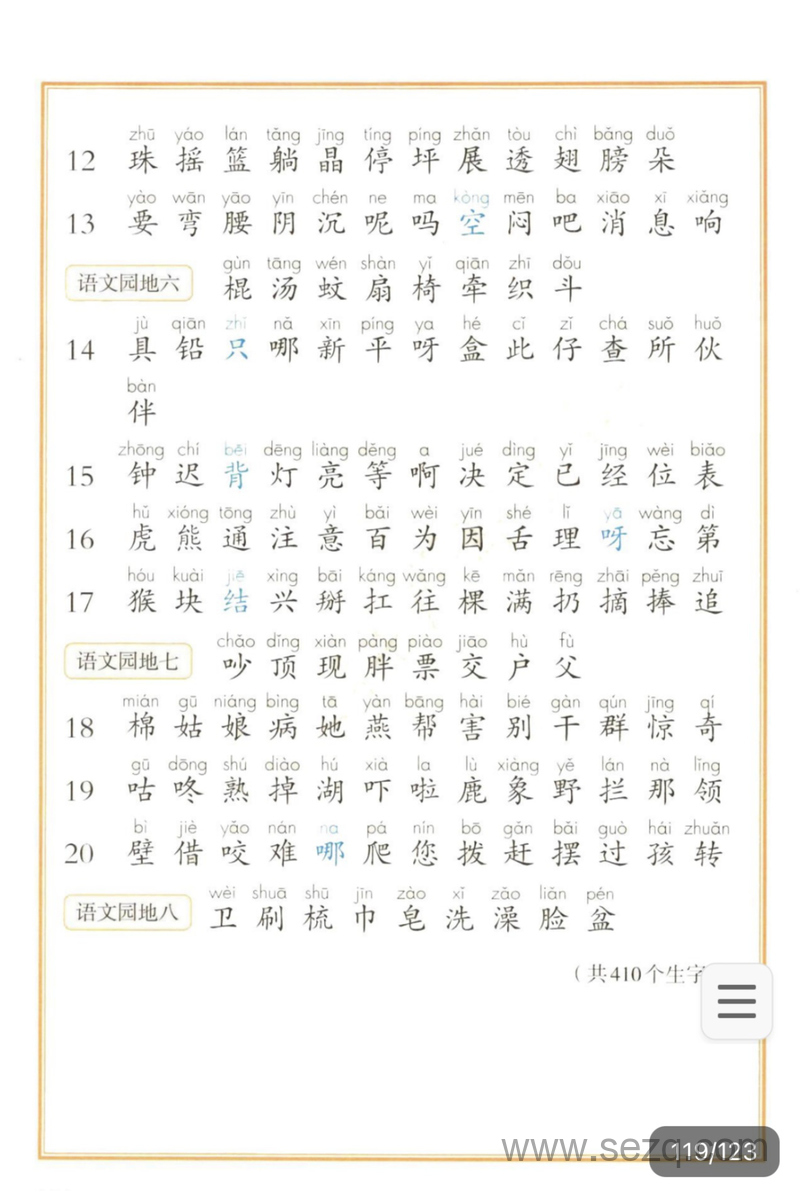 zhū yáo lán tǎng jīng tíng píng zhǎn tòu chì bǎng duǒ
12 珠 摇 篮 躺 晶 停 坪 展 透 翅 膀 朵
yào wān yāo yīn chén ne ma kòng mēn ba xiāo xī xiǎng
13 要 弯 腰 阴 沉 呢 吗 空 闷 吧 消 息 响
gùn tāng wén shàn yǐ qiān zhī dǒu
语文园地六 棍 汤 蚊 扇 椅 牵 织 斗
jù qiān zhǐ nǎ xīn píng ya hé cǐ zǐ chá suǒ huǒ
14 具 铅 只 哪 新 平 呀 盒 此 仔 查 所 伙
bàn
伴
zhōng chí bēi dēng liàng děng a jué dìng yǐ jīng wèi biǎo
15 钟 迟 背 灯 亮 等 啊 决 定 已 经 位 表
hǔ xióng tōng zhù yì bǎi wèi yīn shé lǐ yā wàng dì
16 虎 熊 通 注 意 百 为 因 舌 理 呀 忘 第
hóu kuài jiē xìng bāi káng wǎng kē mǎn rēng zhāi pěng zhuī
17 猴 块 结 兴 掰 扛 往 棵 满 扔 摘 捧 追
chǎo dǐng xiàn pàng piào jiāo hù fù
语文园地七 吵 顶 现 胖 票 交 户 父
mián gū niáng bìng tā yàn bāng hài bié gàn qún jīng qí
18 棉 姑 娘 病 她 燕 帮 害 别 干 群 惊 奇
gū dōng shú diào hú xià la lù xiàng yě lán nà lǐng
19 咕 咚 熟 掉 湖 吓 啦 鹿 象 野 拦 那 领
bì jiè yǎo nán na pá nín bō gǎn bǎi guò hái zhuǎn
20 壁 借 咬 难 哪 爬 您 拨 赶 摆 过 孩 转
wèi shuā shū jīn zào xǐ zǎo liǎn pén
语文园地八 卫 刷 梳 巾 皂 洗 澡 脸 盆
（共410个生字
www.sezq.com
119/123